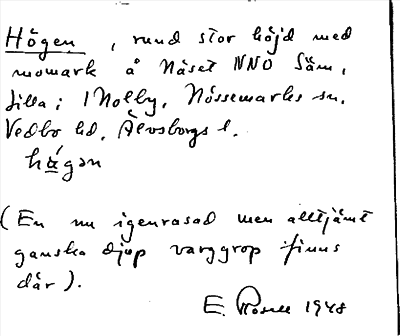 Högen, rund stor höjd med
momark å Näset NNO Säm,
Lilla; i Nolby, Nössemarks sn.
Vedbo hd, Älvsborgs l.
hágən
(En nu igenrasad men alltjämt
ganska djup varggrop finns
där).
E. 1948